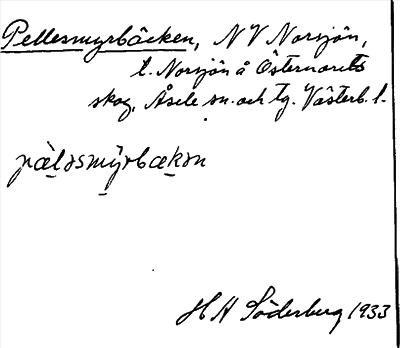 Pellesmyrbäcken, NV Norsjön,
t. Norsjön å Östernorets
skog, Åsele sn. och tg. Västerb. l.
pæ̀lǝsmỳrbækǝn
H H Söderberg 1933